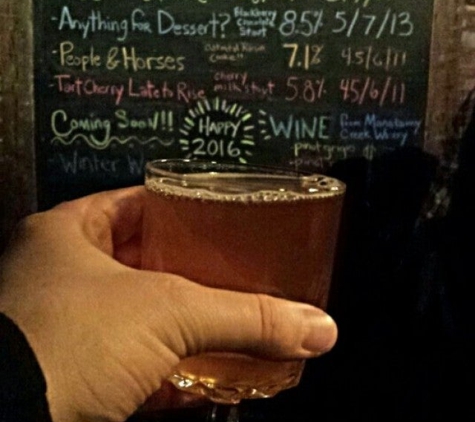 -Anything for Dessert? Blackberry Stout 8.5% 5/7/13
-People & Horses Oatmeal Raisin 7.1% 4.5/6/11
-Tart Cherry Late to Rise cherry milk stout 5.8% 45/6/11
Coming Soon!! HAPPY 2016 WINE from Manatawny Creek Winery
pinot grigio
-Winter